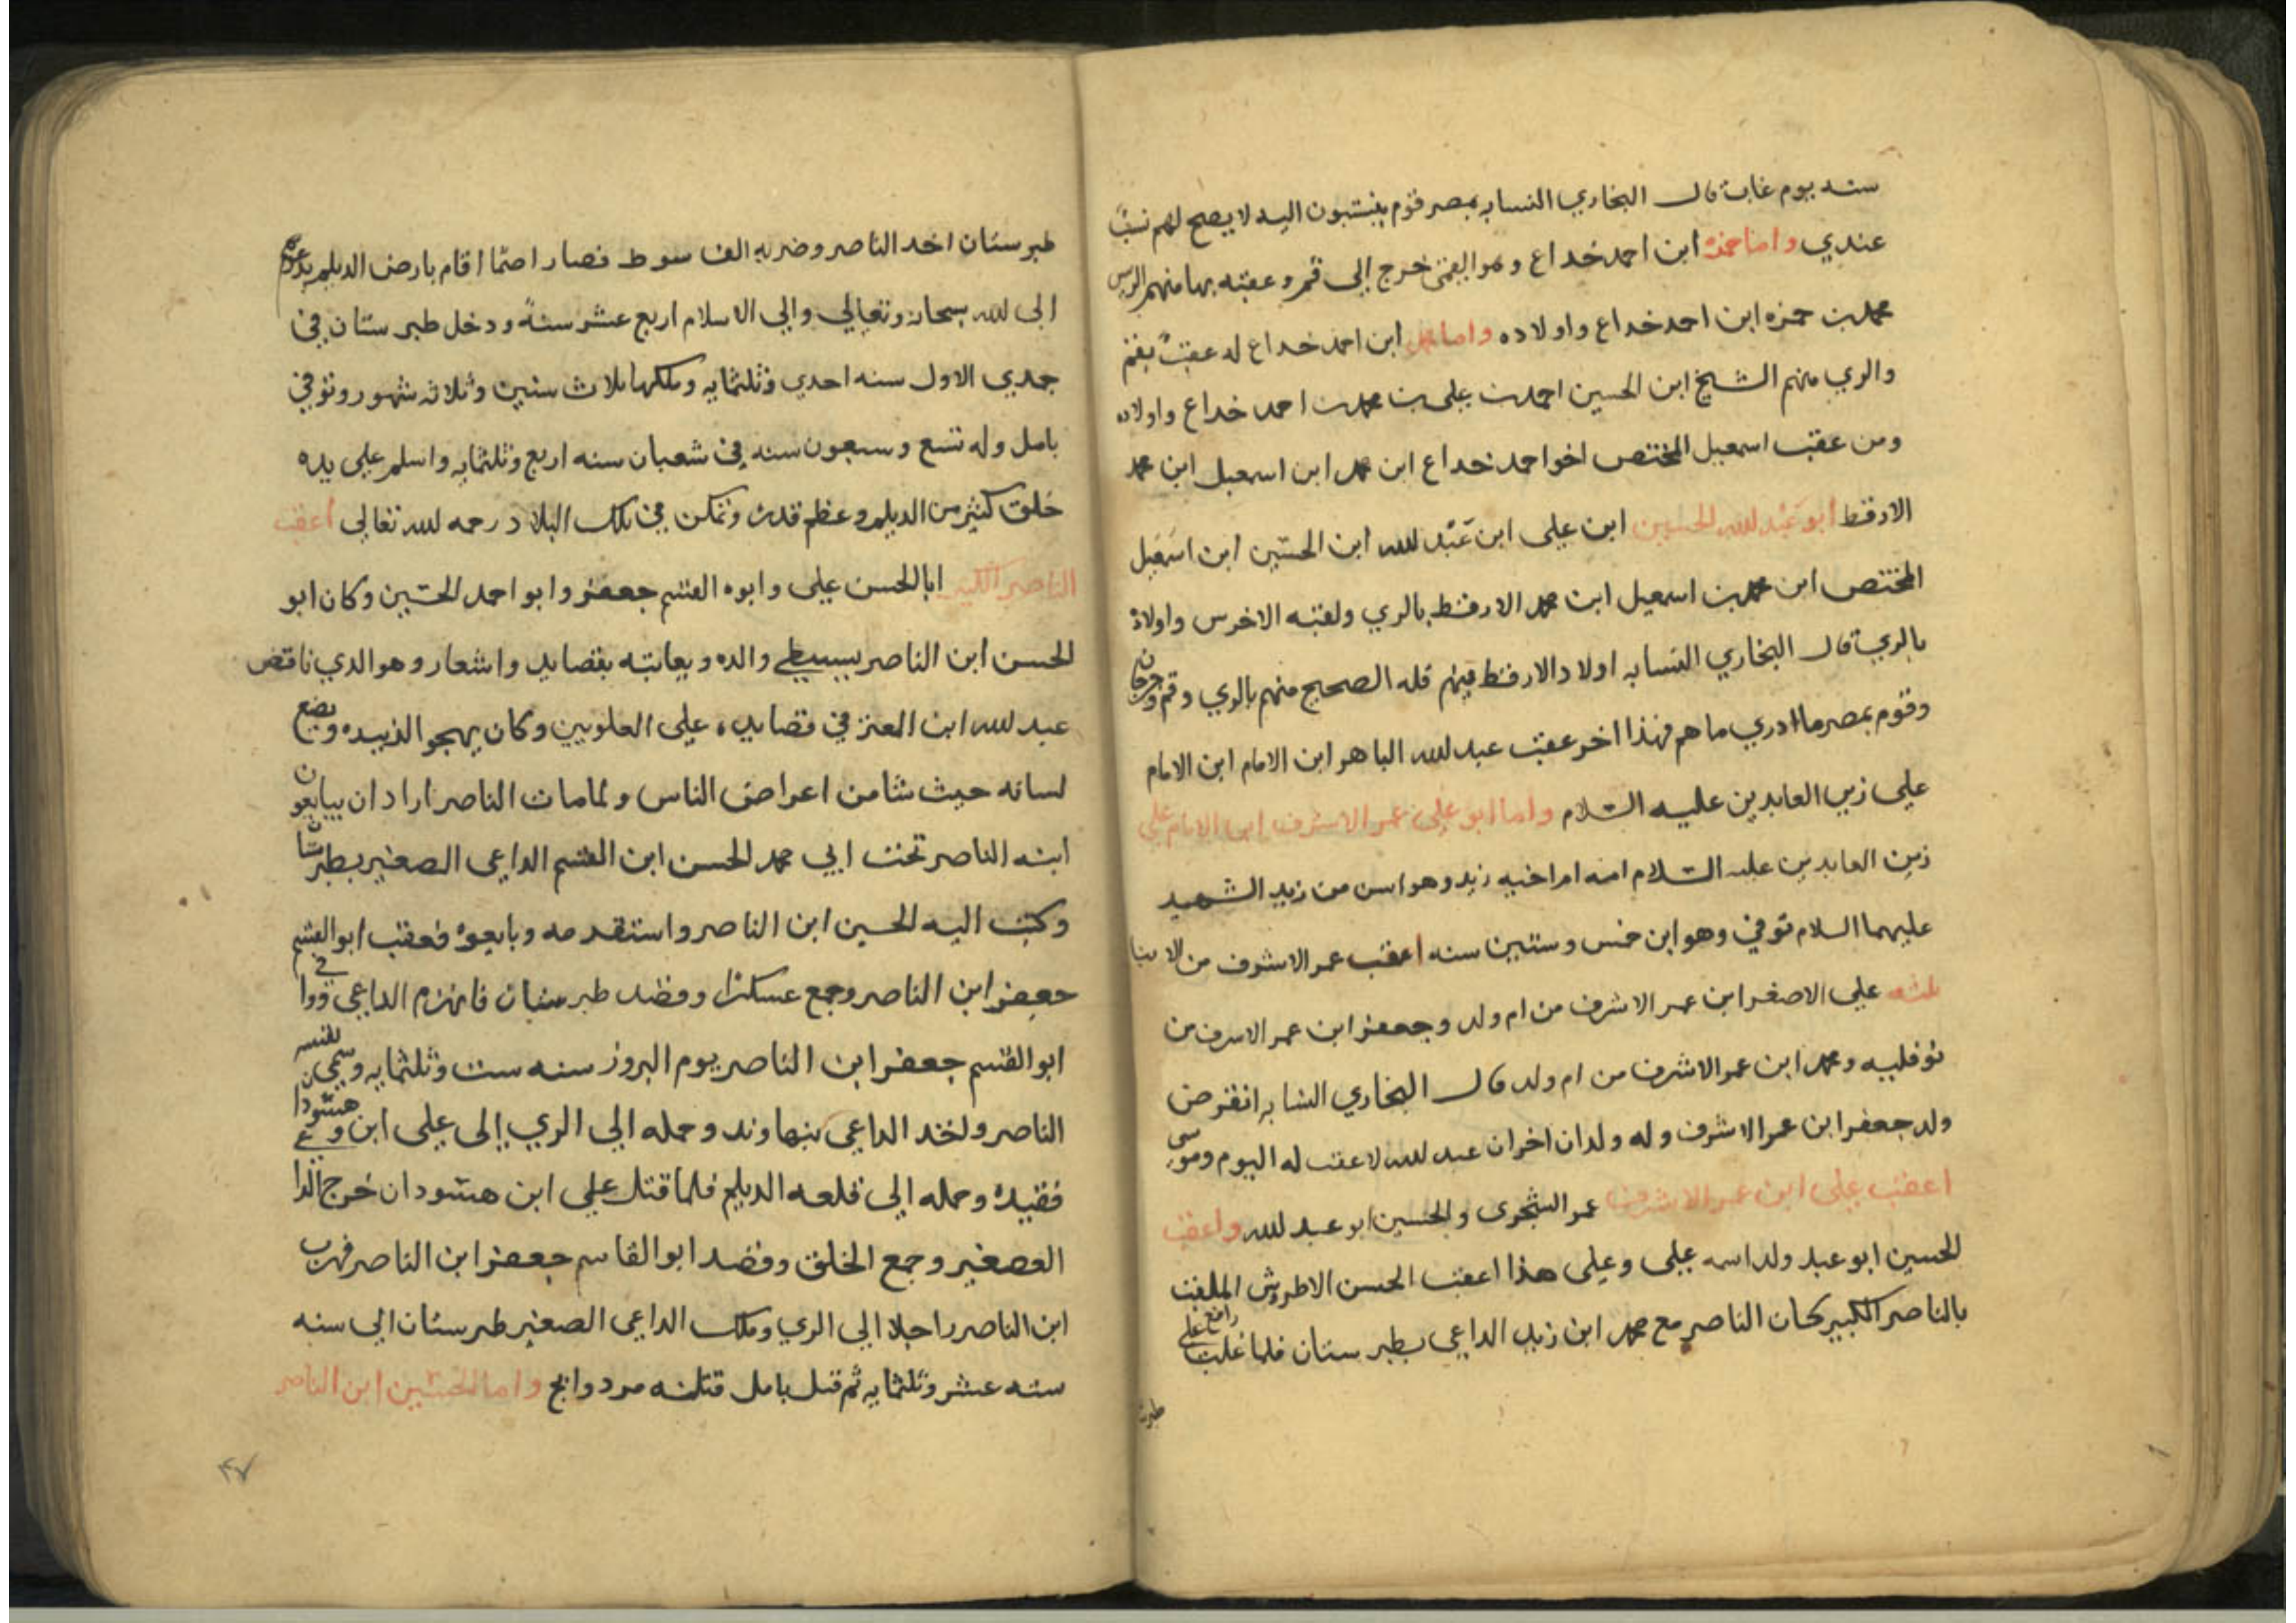 سنه يوم غاب قال البخاري النسابه بمصر قوم ينتسبون اليه لا يصح لهم نسب
عندي واما حمزه ابن احمد خداع وهو القمي خرج الى قم وعقبه بها منهم الريس
محمد بن حمزه ابن احمد خداع واولاده واما محمد ابن احمد خداع له عقب بقم
والري منهم الشيخ ابن الحسين احمد بن علي بن محمد بن احمد خداع واولاده
ومن عقب اسمعيل المختص اخو احمد خداع ابن محمد ابن اسمعيل ابن محمد
الارقط ابو عبد الله الحسين ابن علي ابن عبد الله ابن الحسين ابن اسمعيل
المختص ابن محمد بن اسمعيل ابن محمد الارقط بالري ولقبه الاخرس واولاده
بالري قال البخاري النسابه اولاد الارقط فيهم قله الصحيح منهم بالري وقم وجرجان
وقوم بمصر ما ادري ما هم فهذا اخر عقب عبد الله الباهر ابن الامام ابن الامام
علي زين العابدين عليه السلام واما ابو علي عمر الاشرف ابن الامام علي
زين العابدين عليه السلام امه ام اخيه زيد وهو اسن من زيد الشهيد
عليهما السلام توفي وهو ابن خمس وستين سنه اعقب عمر الاشرف من الابنا
ثلثه علي الاصغر ابن عمر الاشرف من ام ولد وجعفر ابن عمر الاشرف من
نوفليه ومحمد ابن عمر الاشرف من ام ولد قال البخاري النسابه انقرض
ولد جعفر ابن عمر الاشرف وله ولدان اخران عبد الله لا عقب له اليوم وموسى
اعقب علي ابن عمر الاشرف عمر الشجري والحسين ابو عبد الله واعقب
الحسين ابو عبد ولد اسمه علي وعلي هذا اعقب الحسن الاطروش الملقب
بالناصر الكبير كان الناصر مع محمد ابن زيد الداعي بطبرستان فلما غلب رافع على
طبرستان
طبرستان اخد الناصر وضربه الف سوط فصار اصما اقام بارض الديلم يدعوهم
الى الله سبحانه وتعالى والى الاسلام اربع عشر سنة ودخل طبرستان في
جمدي الاول سنه احدي وثلثمايه وملكها ثلاث سنين وثلاثه شهور وتوفي
بامل وله تسع وسبعون سنه في شعبان سنه اربع وثلثمايه واسلم على يده
خلق كثير من الديلم وعظم قدره وتمكن في تلك البلاد رحمه الله تعالى اعقب
الناصر الكبير ابا الحسن علي وابوه القسم جعفر وابو احمد الحسين وكان ابو
الحسن ابن الناصر والده ويعاتبه بقصايد واشعار وهو الدي ناقض
عبد الله ابن المعتز في قصايده على العلويين وكان يهجو الزيديه ويضع
لسانه حيث شا من اعراض الناس ولما مات الناصر ارادان يبايعون
ابنه الناصر تحت ابي محمد الحسن ابن القسم الداعي الصغير بطبرستان
وكتب اليه الحسين ابن الناصر واستقدمه وبايعوه فعقب ابو القسم
جعفر ابن الناصر وجمع عسكرا وقصد طبرستان فانهزم الداعي ووافى
ابو القسم جعفر ابن الناصر يوم النيروز سنه ست وثلثمايه وسمى لنفسه
الناصر ولخد الداعي بنهاوند وحمله الي الري الى علي ابن وهشودان
فقيده وحمله الي قلعه الديلم فلما قتل علي ابن هشودان خرج الداعي
الصغير وجمع الخلق وقصد ابو القاسم جعفر ابن الناصر فهرب
ابن الناصر راجلا الي الري وملك الداعي الصغير طبرستان الي سنه
سته عشر وثلثمايه ثم قتل بامل قتله مردوايج واما الحسين ابن الناصر
٤٧